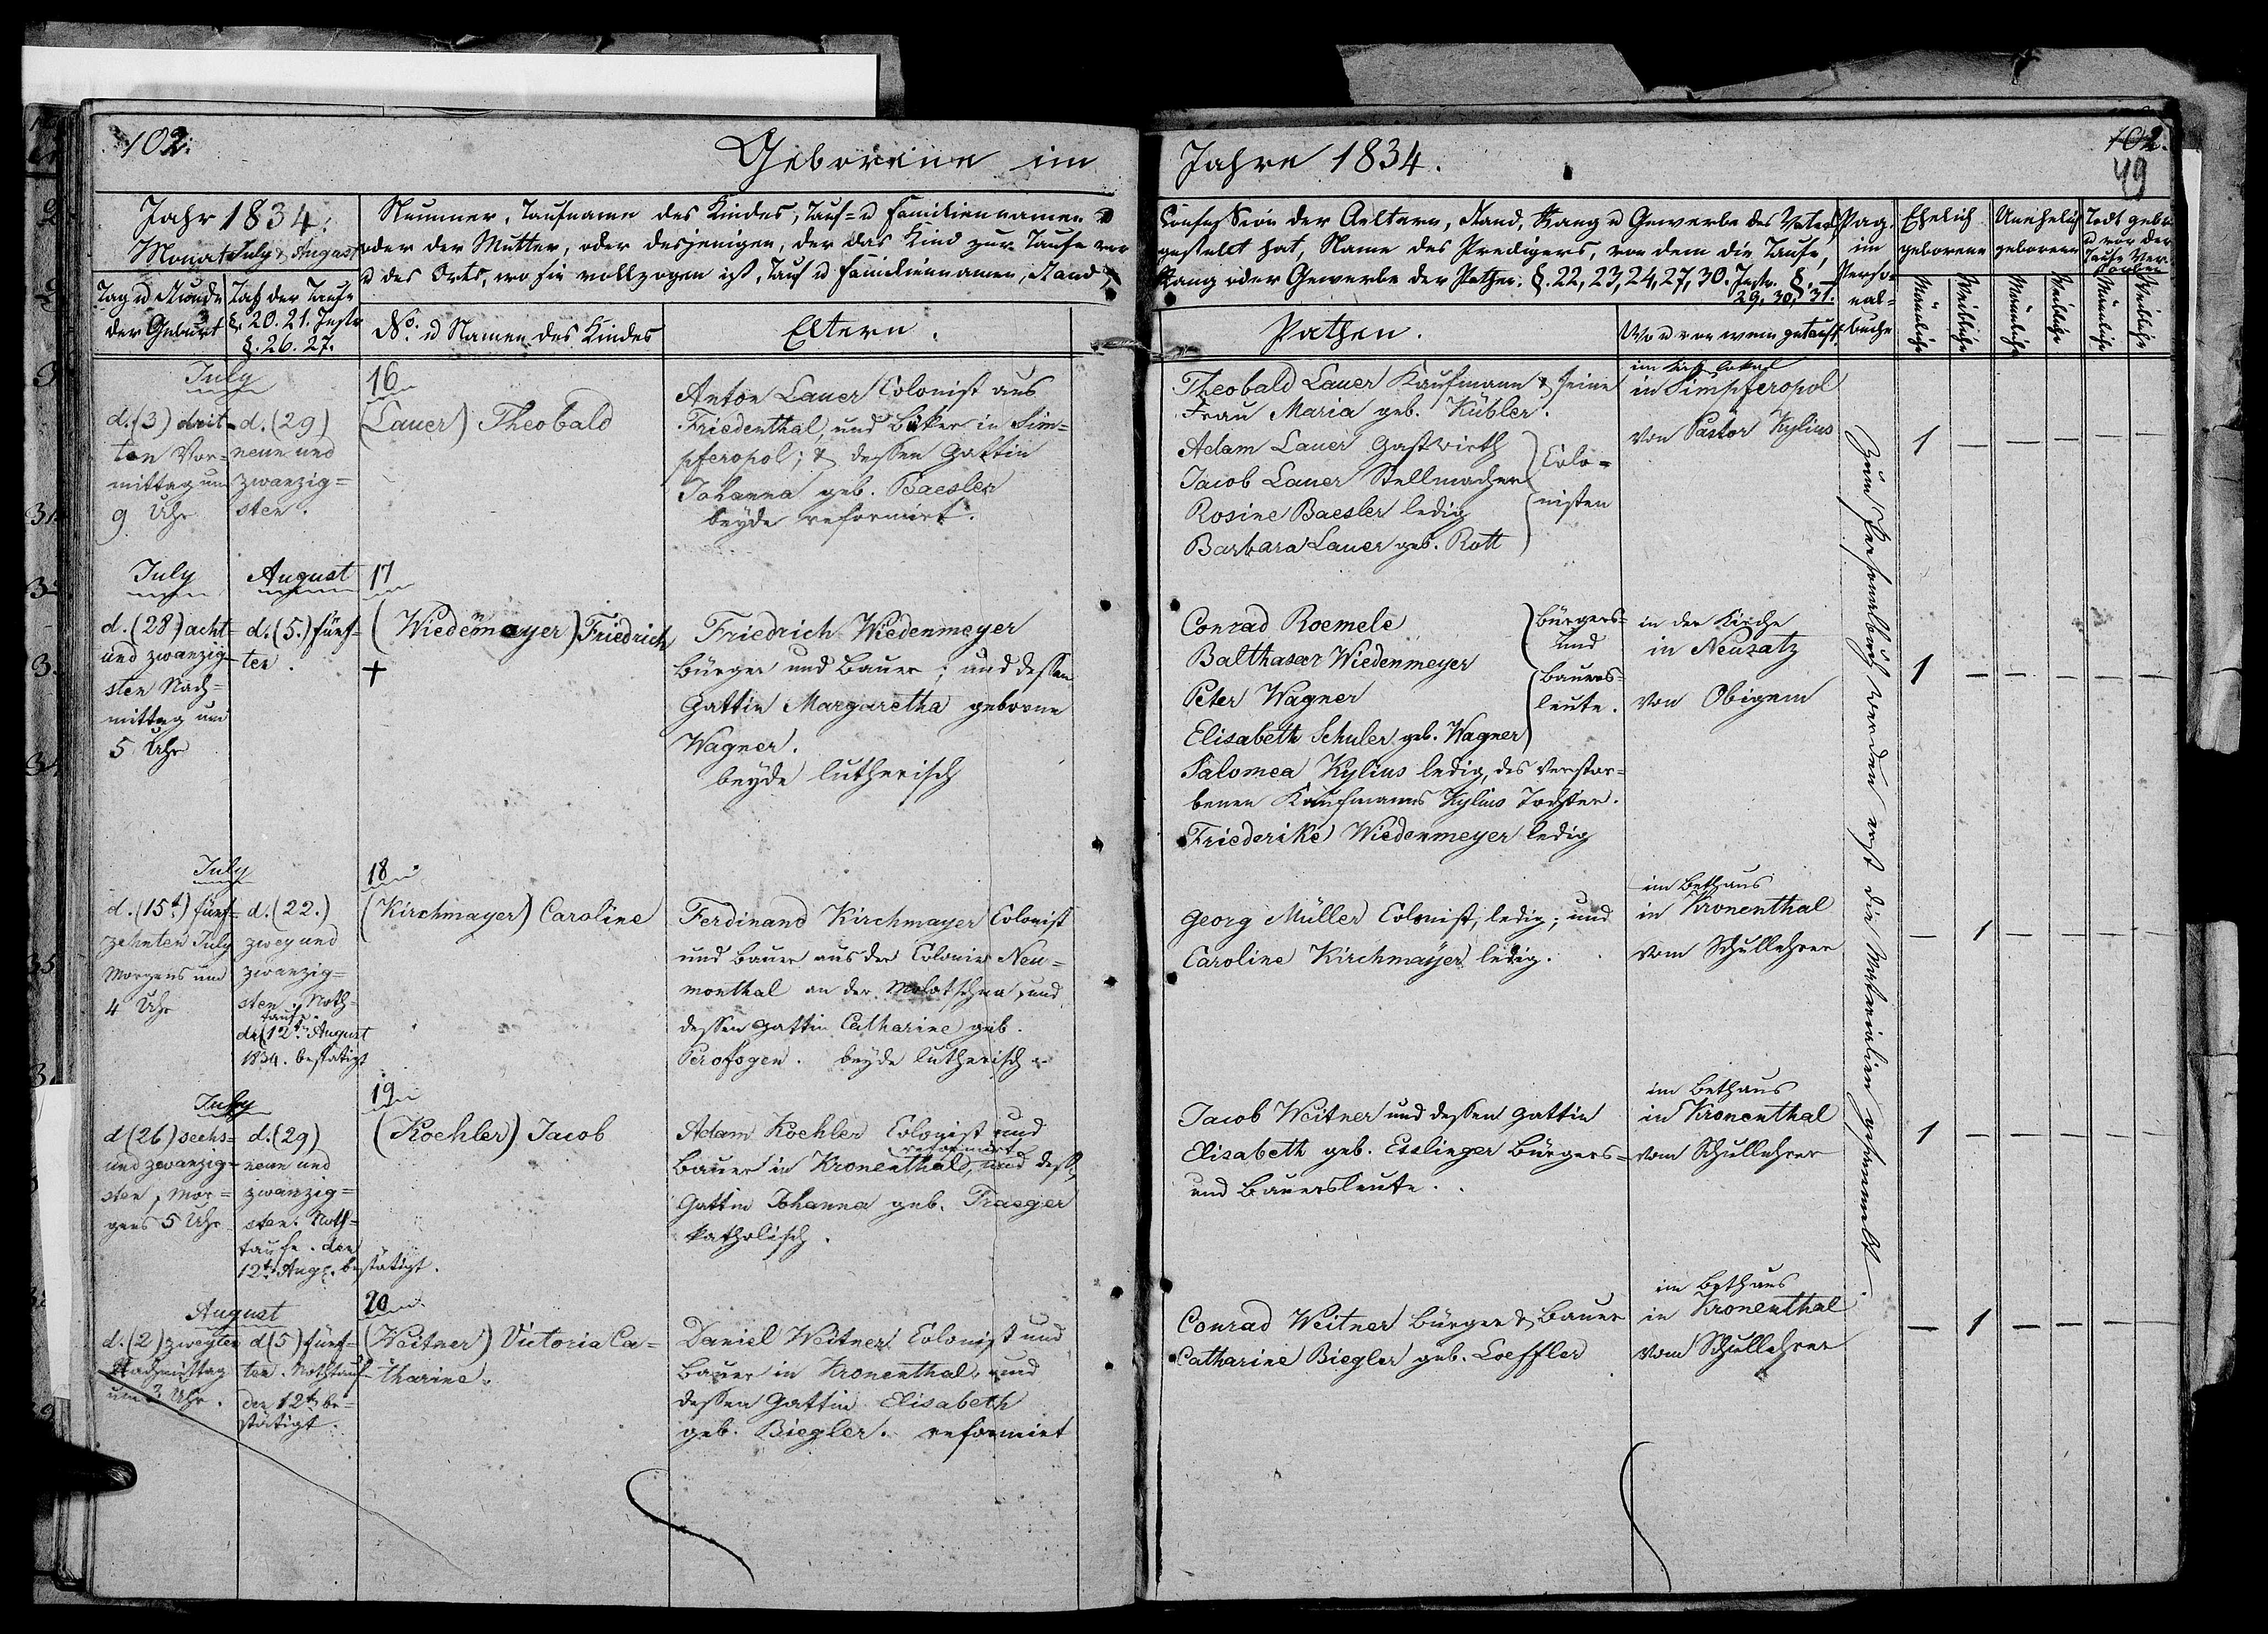 102.
Geborene im
Jahr 1834.
Monat July & August
Nummer, Taufname des Kindes, Tauf- u Familiennamen d
oder der Mutter, oder desjenigen, der das Kind zur Taufe vor
u des Orts, wo sie vollzogen ist, Tauf u Familiennamen, Stand,
Tag u Stunde
der Geburt
Tag der Taufe
§. 20. 21. Instr.
§. 26. 27.
No. u Namen des Kindes
Eltern.
July
d. (3) drit-
ten Vor-
mittag um
9 Uhr
d. (29)
neun und
zwanzig-
sten.
16
(Lauer) Theobald
Anton Lauer Colonist aus
Friedenthal, und Bäker in Sim-
pferopol; & dessen Gattin
Johanna geb. Baesler
beyde reformirt.
July
d. (28) acht-
und zwanzig-
sten Nach-
mittag um
5 Uhr
August
d. (5.) fünf-
ten.
17
(Wiedenmayer) Friedrich
+
Friedrich Wiedenmeyer
Bürger und Bauer; und dessen
Gattin Margaretha geborne
Wagner.
beyde lutherisch
July
d. (15t) fünf-
zehnten July
Morgens um
4 Uhr
d. (22.)
zwey und
zwanzig-
sten, Noth-
taufe.
d. (12t August
1834. bestätigt
18
(Kirchmayer) Caroline
Ferdinand Kirchmayer Colonist
und Bauer aus der Colonie Neu-
monthal an der Molotschna, und
dessen Gattin Catharine geb.
beyde lutherisch
July
d (26) sechs-
und zwanzig-
sten, Mor-
gens 5 Uhr
d. (29)
neun und
zwanzig-
sten. Noth-
taufe. den
12t Aug. bestätigt.
19
(Koehler) Jacob
Adam Koehler Colonist und
reformirt
Bauer in Kronenthal, und dess.
Gattin Johanna geb. Traeger
katholisch.
August
d. (2) zweyten
Nachmittag
um 3 Uhr.
d (5) fünf-
ten. Nothtauf-
den 12t be-
stätigt.
20
(Weitner) Victoria Ca-
tharine.
Daniel Weitner Colonist und
Bauer in Kronenthal, und
dessen Gattin Elisabeth
geb. Biegler. reformirt
Jahre 1834.
102.
49
Confession der Aeltern, Stand, Rang u Gewerbe des Vaters
gestellt hat, Name des Predigers, von dem die Taufe,
Rang oder Gewerbe der Pathen. §. 22, 23, 24, 27, 30. Instr. §.
29, 30, 31.
Pathen.
Wo u von wem getauft
Pag.
im
Perso-
nal-
buche
Ehelich
geborene
Unehelich
geborene
Todt gebor.
u vor der
Taufe Ver-
storben
Männliche
Weibliche
Männliche
Weibliche
Männliche
Weibliche
Theobald Lauer Kaufmann & seine
Frau Maria geb. Kübler.
Adam Lauer Gastwirth
Jacob Lauer Stellmacher
Rosine Baesler ledig
Barbara Lauer geb. Rott
Colo-
nisten
im Kirch lokal
in Simpferopol
von Pastor Kylius
1 — — — — —
Conrad Roemele
Balthasar Wiedenmeyer
Peter Wagner
Elisabeth Schuler geb. Wagner
Bürgers-
und
Bauers-
leute.
Salomea Kylius ledig, des verstor-
benen Kaufmanns Kylius Tochter.
Friederike Wiedenmeyer ledig
in der Kirche
in Neusatz
von Obigem
1 — — — — —
Georg Müller Colonist, ledig; und
Caroline Kirchmayer ledig.
im Bethaus
in Kronenthal
vom Schullehrer
— 1 — — — —
Jacob Weitner und dessen Gattin
Elisabeth geb. Esslinger Bürgers-
und Bauersleute.
im Bethaus
in Kronenthal
vom Schullehrer
1 — — — — —
Conrad Weitner Bürger & Bauer
Catharine Biegler geb. Loeffler
im Bethaus
in Kronenthal
vom Schullehrer
— 1 — — — —
Zum Personalbuch werden erst die Materialien gesammelt.